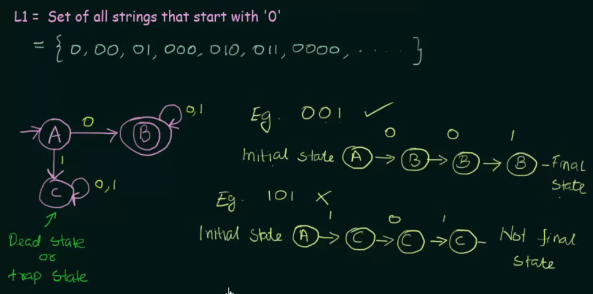 L1 = Set of all strings that start with '0'
= { 0, 00, 01, 000, 010, 011, 0000, ····· }
A 0 B 0,1
1
C 0,1
Dead State
or
trap State
Eg. 001 ✓
0 0 1
Initial state A → B → B → B - Final
State
Eg. 101 ×
1 0 1
Initial State A → C → C → C - Not final
State